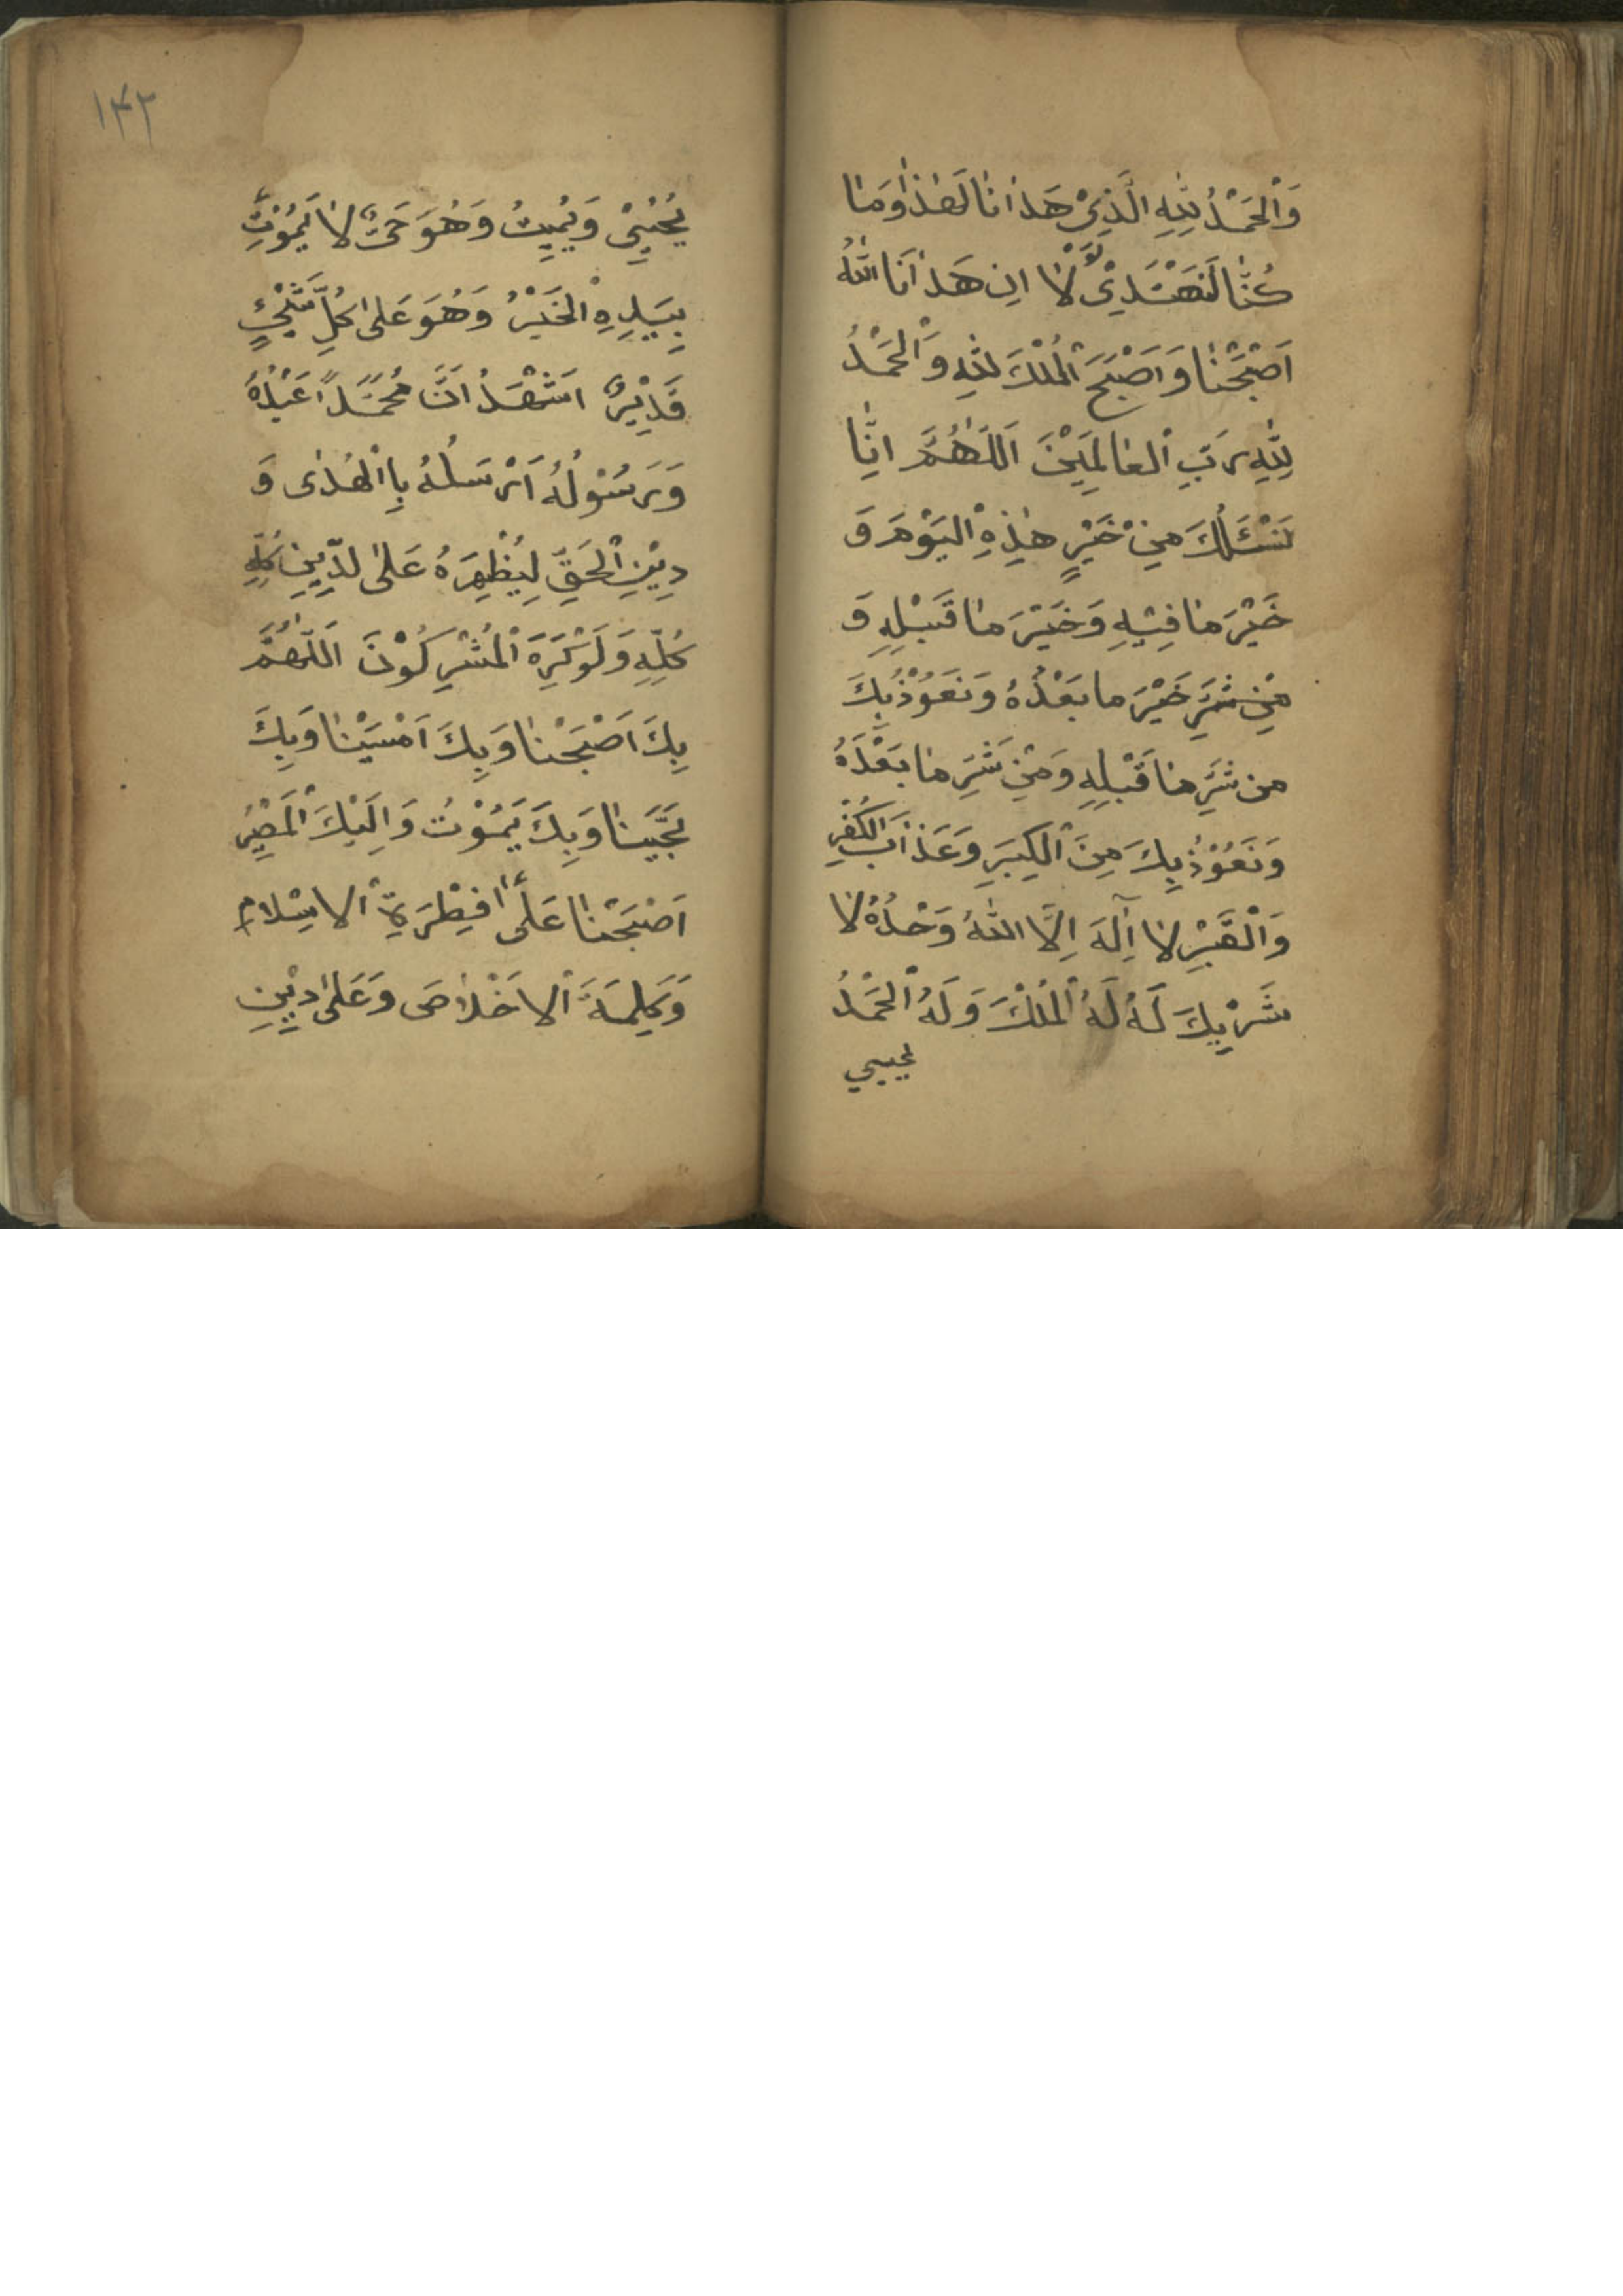 وَالْحَمْدُ لِلّٰهِ الَّذِيْ هَدٰانٰا لَهٰذٰا وَمٰا
كُنّٰا لَنَهْتَدِيْ لَوْلٰا اِن هَدٰانَا اللّٰهُ
اَصْبَحْنٰا وَاَصْبَحَ الْمُلْكَ لِلّٰهِ وَالْحَمْدُ
لِلّٰهِ رَبِّ الْعٰالَمِيْنَ اَللّٰهُمَّ اِنّٰا
نَسْئَلُكَ مِنْ خَيْرٍ هٰذِهِ الْيَوْمَ وَ
خَيْرَ مٰا فِيْهِ وَخَيْرَ مٰا قَبْلِهِ وَ
مِنْ شَرِّ خَيْرَ ما بَعْدُهُ وَنَعُوْذُ بِكَ
من شَرِّ مٰا قَبْلِهِ وَمِنْ شَرِّ مٰا بَعْدَهُ
وَنَعُوْذُ بِكَ مِنَ الْكِبَرِ وَعَذٰابَ الْكُفْرِ
وَالْقَبْرِ لٰا اِلٰهَ اِلَّا اللّٰهُ وَحْدُهُ لٰا
شَرْيِكَ لَهُ لَهُ الْمُلْكَ وَلَهُ الْحَمْدُ
يحيي
١٤٢
يُحْيِيْ وَيُمِيِتُ وَهُوَ حَىٌّ لٰا يَمُوْتُ
بِيَدِهِ الْخَيْرُ وَهُوَ عَلٰى كُلِّ شَيْئٍ
قَدِيْرٌ اَشْهَدُ اَنَّ مُحَمَّدًا عَبْدُهُ
وَرَسُوْلُهُ اَرْسَلُهُ بِاالْهُدٰى وَ
دِيْنِ الْحَقِّ لِيُظْهِرَهُ عَلٰى لدِّيِنِ كُلِّهِ
كُلِّهِ وَلَوْ كَرِهَ الْمُشْرِكُوْنَ اَللّٰهُمَّ
بِكَ اَصْبَحْنٰا وَبِكَ اَمْسَيْنٰا وَبِكَ
نَحْيَينٰا وَبِكَ يَمُوْتُ وَاِلَيْكَ الْمَصِيْرُ
اَصْبَحْنٰا عَلٰى فِطْرَةِ الْاسِلامِ
وَكَلِمَةَ الْاخْلٰاصَ وَعَلٰى دِيْنِ